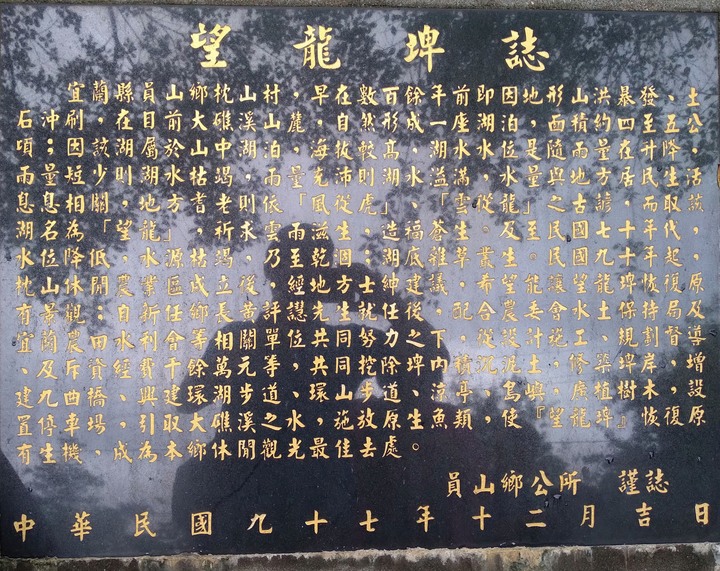 望龍埤誌
宜蘭縣員山鄉枕山村，早在數百餘年前即因地形山洪暴發、土
石沖刷，在目前大礁溪山麓，自然形成一座湖泊，面積約四至五公
頃；因該湖屬於山中湖泊，海拔較高，湖水水位是隨雨量在升降，
雨量短少則湖水枯竭，雨量充沛則湖水溢滿，水量與地方居民生活
息息相關，地方耆老則依「風從虎」、「雲從龍」之古諺，而取談，
湖名為「望龍」，祈求雲雨滋生，造福蒼生。及至民國七十年代起，
水位降低，水源枯竭，乃至乾涸；湖底雜草叢生。民國九十年起是
枕山休閒農業區成立後，經地方士紳建議，希望能讓望龍埤恢復原
有景觀；自新任鄉長黃評先生就任後，配合農委會水土保持局及
宜蘭農田水利會等相關單位，共同努力之下，從設計施工、規劃督導
、及斥資經費千餘萬元等，共同挖除埤內積沉泥土，修築埤岸，增
建九曲橋、興建環湖步道、環山步道、涼亭、嶼，廣植樹木，設
置停車場，引取大礁溪之水，施放原生魚類，使『望龍埤』恢復原
有生機，成為本鄉休閒觀光最佳去處。
員山鄉公所 謹誌
中華民國九十七年十二月吉日